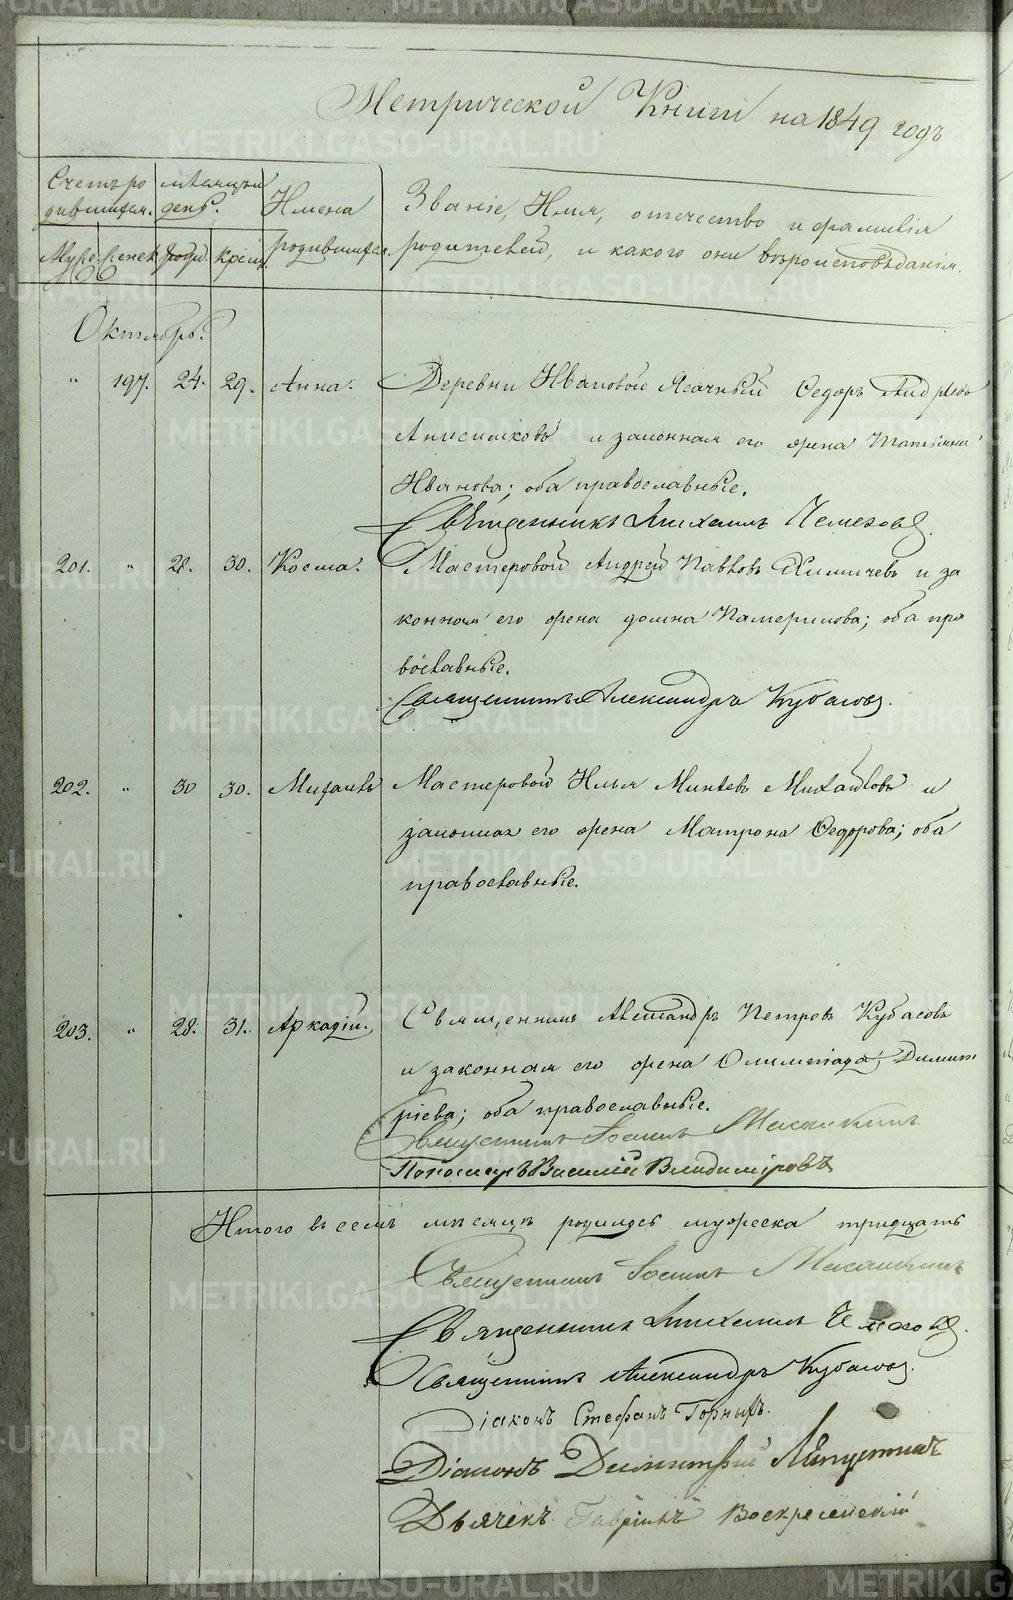 Метрической Книги на 1849 годъ
Счетъ родившихся. мѣсяцъ и день. Имена родившихся Званіе, Имя, отечество и фамилія родителей, и какого они вѣроисповѣданія.
Муже Женск рожд. крещ.
Октябрь.
" 197. 24. 29. Анна. Деревни Ивановой Ясачный Ѳедоръ Андреевъ
Анисимковъ и законная его жена Татьяна
Иванова; оба православные.
Священникъ Михаилъ Чемезовъ.
201. " 28. 30. Косма. Мастеровой Андрей Павловъ и за
конная его жена домна оба пра
вославные.
Священникъ Александръ Кубасовъ.
202. " 30 30. Михаилъ Мастеровой Илья Минѣевъ Михайловъ и
законная его жена Матрона Ѳедорова; оба
православные.
203. " 28. 31. Аркадій. Священникъ Александръ Петровъ Кубасовъ
и законная его жена Олимпіада Димит
ріева; оба православные.
Священникъ Іоаннъ
Пономарь Василій Владиміровъ
Итого въ семъ мѣсяцѣ родилось мужеска тридцать
Священникъ Іоаннъ
Священникъ Михаилъ Чемезовъ.
Священникъ Александръ Кубасовъ.
Діаконъ Стефанъ Горныхъ.
Діаконъ Димитрій Лѣпустинъ
Дьячекъ Гавріилъ Воскресенскій
METRIKI.GASO-URAL.RU